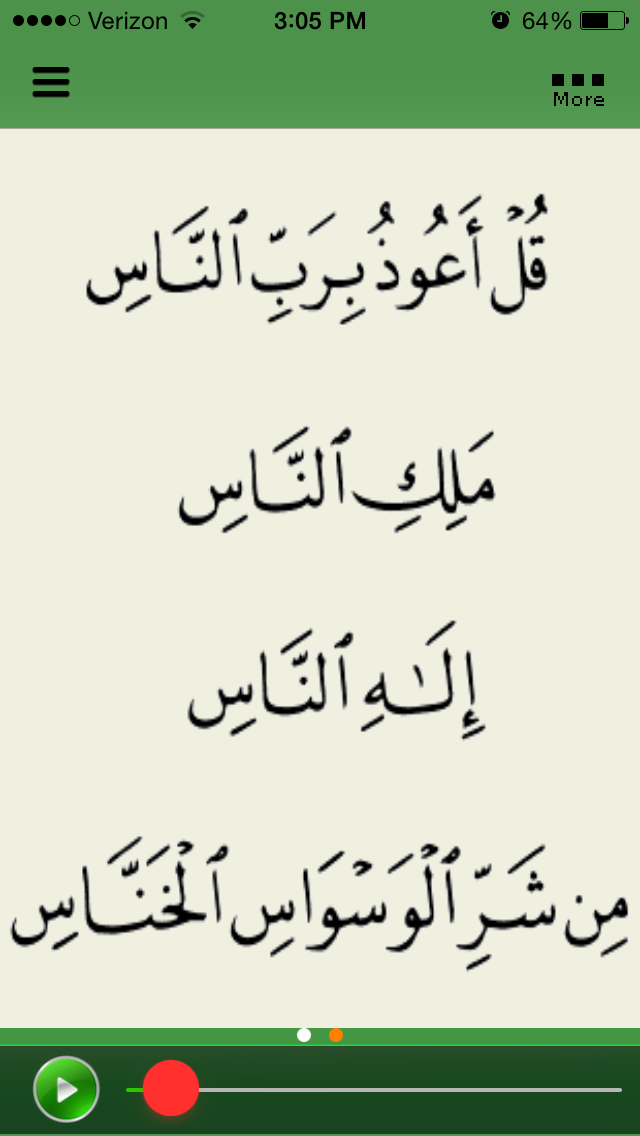 Verizon 3:05 PM 64%
More
قُلۡ أَعُوذُ بِرَبِّ ٱلنَّاسِ
مَلِكِ ٱلنَّاسِ
إِلَـٰهِ ٱلنَّاسِ
مِن شَرِّ ٱلۡوَسۡوَاسِ ٱلۡخَنَّاسِ